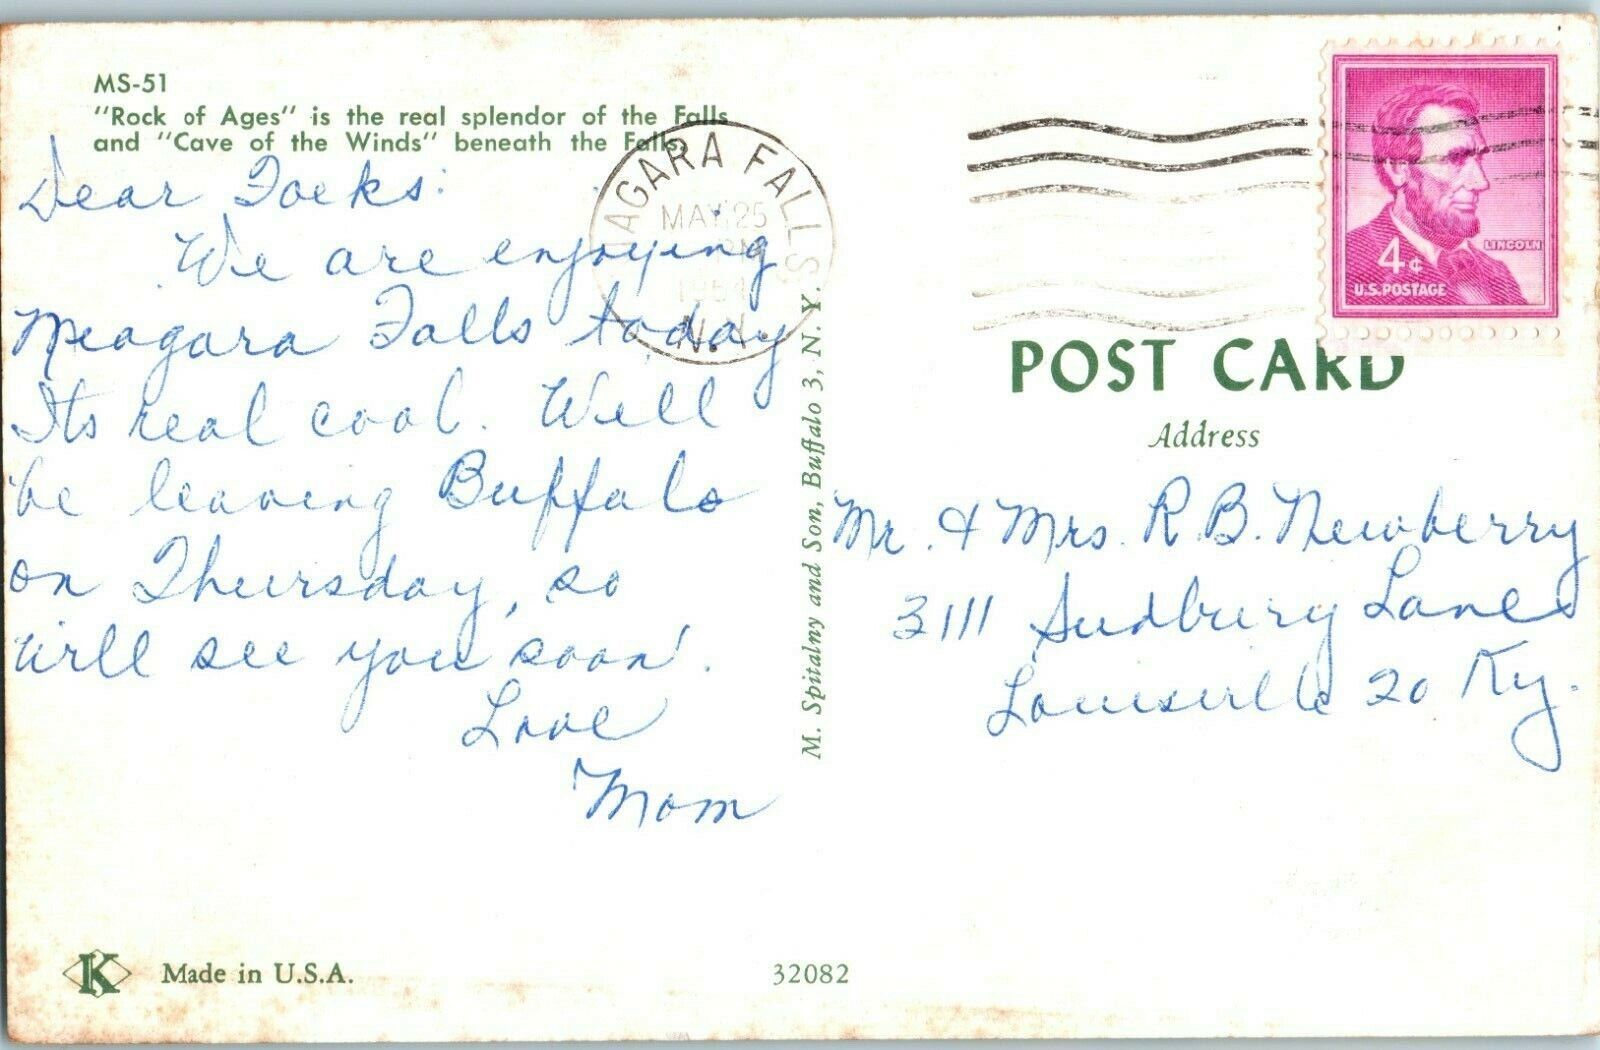 MS-51
"Rock of Ages" is the real splendor of the Falls
and "Cave of the Winds" beneath the Falls.
Dear Folks:
We are enjoying
Niagara Falls today
Its real cool. Will
be leaving Buffalo
on Thursday, so
will see you soon.
Love
Mom
NIAGARA FALLS
MAY 25
N.Y.
M. Spitalny and Son, Buffalo 3, N. Y.
LINCOLN
4¢
U.S. POSTAGE
POST CARD
Address
Mr. & Mrs. R. B. Newberry
3111 Sudbury Lane
Louisville 20 Ky.
K Made in U.S.A.
32082